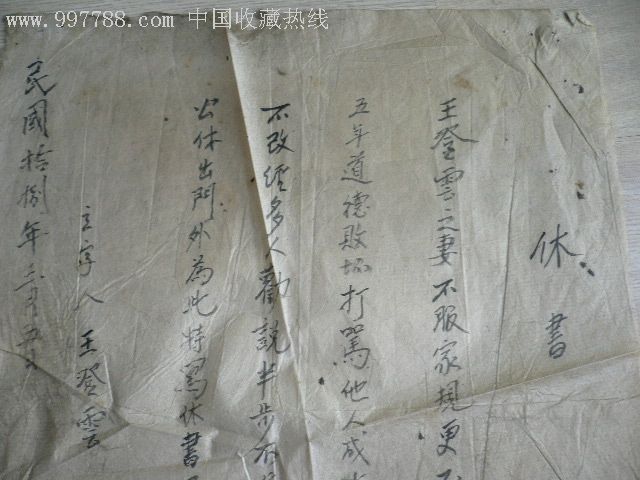 www.997788.com 中国收藏热线
休書
王登雲之妻不服家規更
五年道德敗坏打罵他人成
不改經多人勸說半步不
公休出門外為此特寫休書
立字人王登雲
民國拾捌年